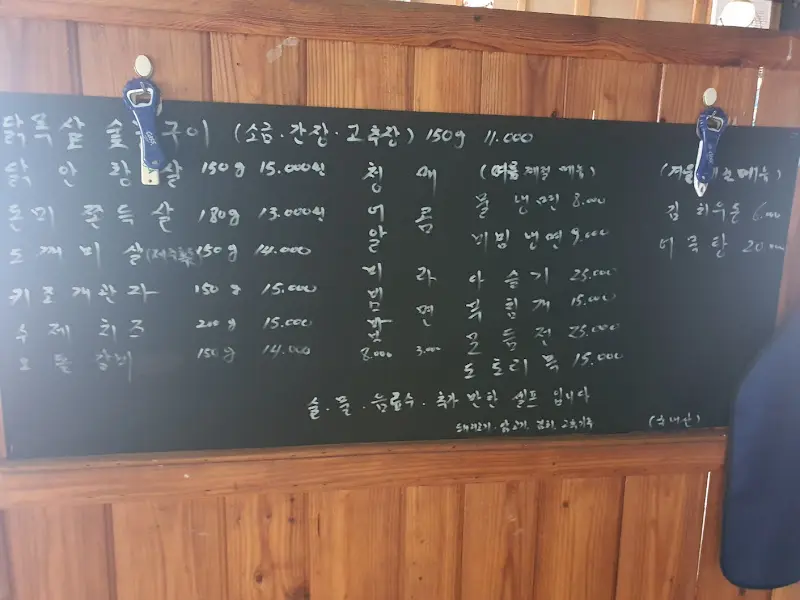 닭목살 숯 구이 (소금.간장.고추장) 150g 11.000
닭 안 창 살 150g 15.000원
돈미 쫀득살 180g 13.000원
도깨비 살 150g 14.000
키조개관자 150g 15.000
수제 치즈 200g 15.000
150g 14.000
청어알비빔밥 8.000
매콤라면 3.000
(여름 계절 메뉴)
물 냉면 8.000
비빔 냉면 9.000
25.000
15.000
모듬전 25.000
도토리묵 15.000
(겨울 메뉴)
김치우동 6.000
어묵탕 20.000
술.물.음료수.추가 반찬 셀프 입니다
돼지고기.닭고기.김치.고춧가루 (국내산)